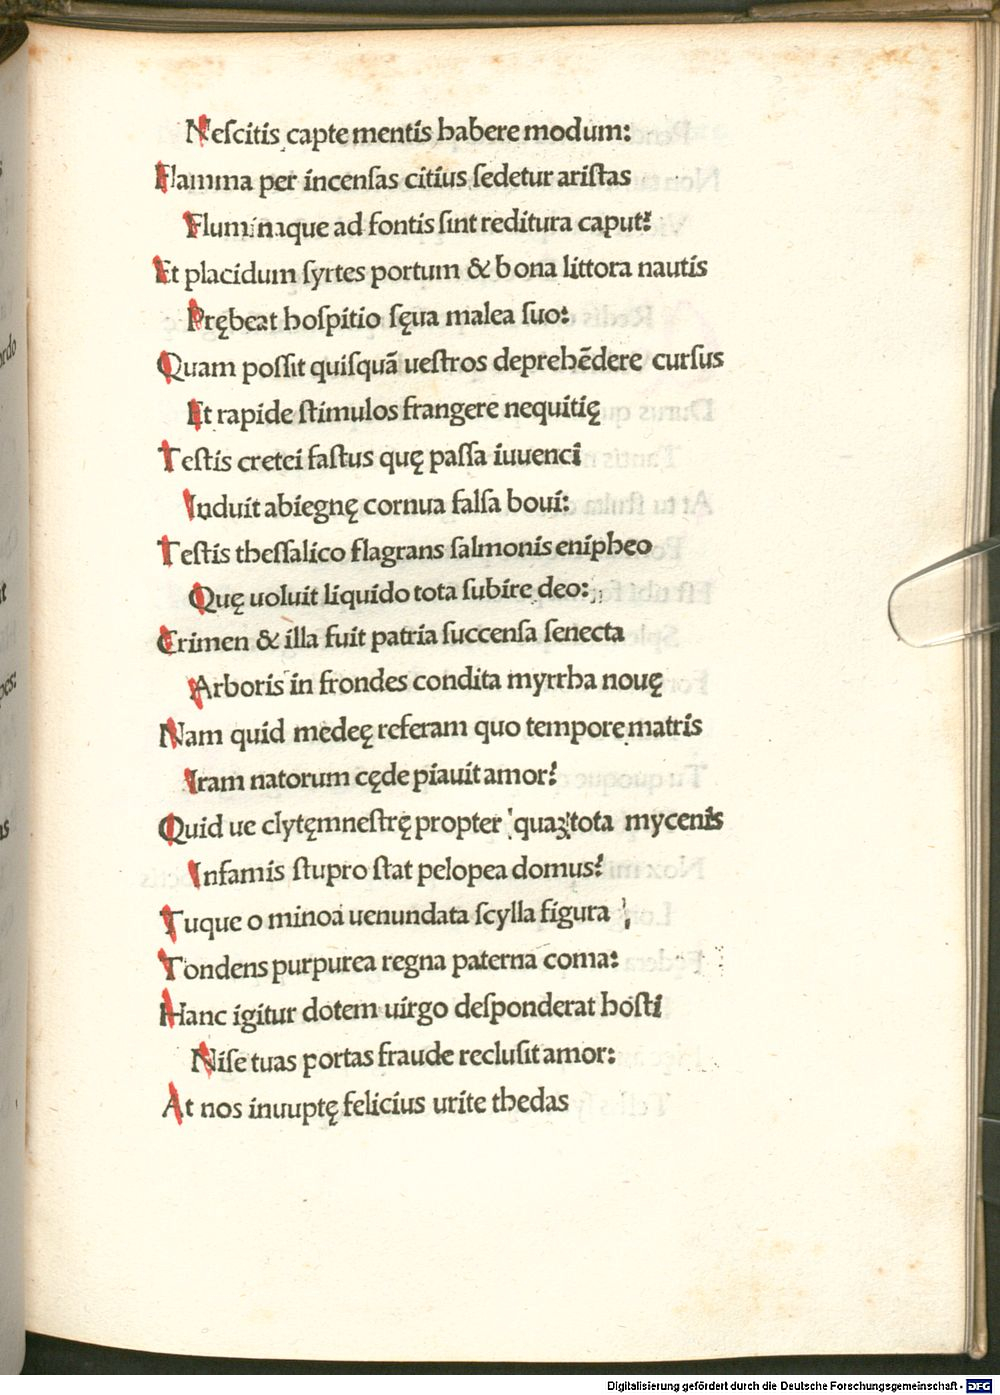 Neſcitis capte mentis habere modum:
Flamma per incenſas citius ſedetur ariſtas
Fluminaque ad fontis ſint reditura caput?
Et placidum ſyrtes portum & bona littora nautis
Prębeat hoſpitio ſęua malea ſuo:
Quam poſſit quiſquā ueſtros deprehēdere curſus
Et rapide ſtimulos frangere nequitię
Teſtis cretei faſtus quę paſſa iuuenci
Induit abiegnę cornua falſa boui:
Teſtis theſſalico flagrans ſalmonis enipheo
Quę uoluit liquido tota ſubire deo:
Crimen & illa fuit patria ſuccenſa ſenecta
Arboris in frondes condita myrrha nouę
Nam quid medeę referam quo tempore matris
Iram natorum cęde piauit amor?
Quid ue clytęmneſtrę propter quaȝ tota mycenis
Infamis ſtupro ſtat pelopea domus?
Tuque o minoa uenundata ſcylla figura
Tondens purpurea regna paterna coma:
Hanc igitur dotem uirgo deſponderat hoſti
Niſe tuas portas fraude recluſit amor:
At nos inuuptę felicius urite thedas
Digitalisierung gefördert durch die Deutsche Forschungsgemeinschaft - DFG